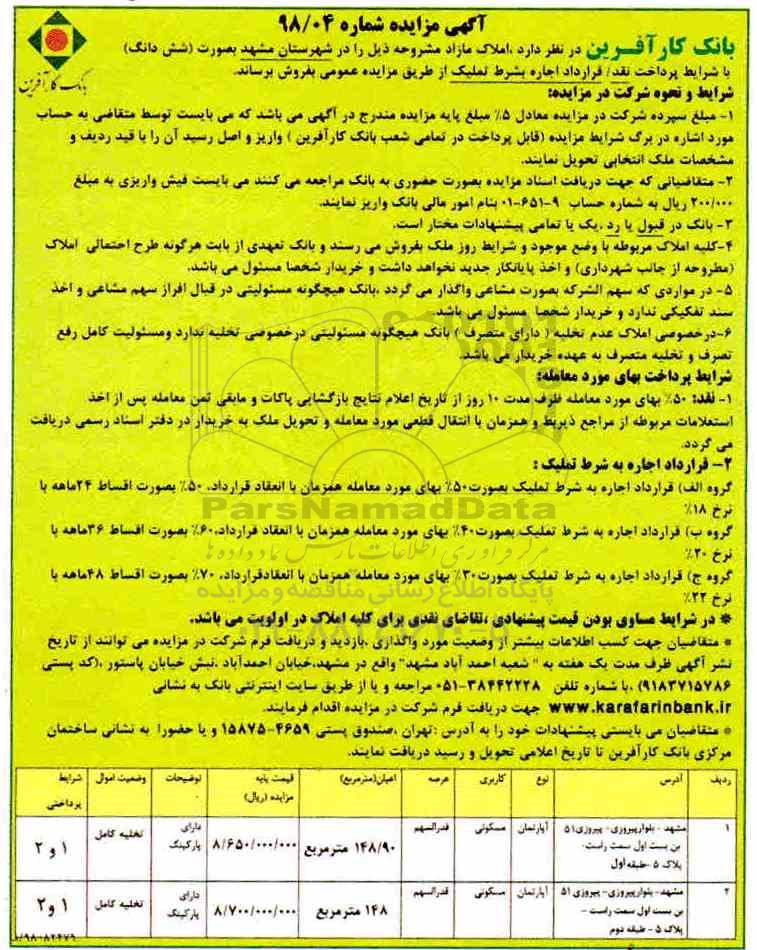 آگهی مزایده شماره ۹۸/۰۴
بانک کارآفرین در نظر دارد ،املاک مازاد مشروحه ذیل را در شهرستان مشهد بصورت (شش دانگ)
با شرایط پرداخت نقد/ قرارداد اجاره بشرط تملیک از طریق مزایده عمومی بفروش برساند.
بانک کارآفرین
شرایط و نحوه شرکت در مزایده:
۱- مبلغ سپرده شرکت در مزایده معادل ۵٪ مبلغ پایه مزایده مندرج در آگهی می باشد که می بایست توسط متقاضی به حساب
مورد اشاره در برگ شرایط مزایده (قابل پرداخت در تمامی شعب بانک کارآفرین ) واریز و اصل رسید آن را با قید ردیف و
مشخصات ملک انتخابی تحویل نمایند.
۲- متقاضیانی که جهت دریافت اسناد مزایده بصورت حضوری به بانک مراجعه می کنند می بایست فیش واریزی به مبلغ
۲۰۰/۰۰۰ ریال به شماره حساب ۹-۶۵۱-۰۱ بنام امور مالی بانک واریز نمایند.
۳- بانک در قبول یا رد ،یک یا تمامی پیشنهادات مختار است.
۴-کلیه املاک مربوطه با وضع موجود و شرایط روز ملک بفروش می رسند و بانک تعهدی از بابت هرگونه طرح احتمالی املاک
(مطروحه از جانب شهرداری) و اخذ پایانکار جدید نخواهد داشت و خریدار شخصا مسئول می باشد.
۵- در مواردی که سهم الشرکه بصورت مشاعی واگذار می گردد ،بانک هیچگونه مسئولیتی در قبال افراز سهم مشاعی و اخذ
سند تفکیکی ندارد و خریدار شخصا مسئول می باشد.
۶-درخصوص املاک عدم تخلیه ( دارای متصرف ) بانک هیچگونه مسئولیتی درخصوص تخلیه ندارد ومسئولیت کامل رفع
تصرف و تخلیه متصرف به عهده خریدار می باشد.
شرایط پرداخت بهای مورد معامله:
۱- نقد: ۵۰٪ بهای مورد معامله ظرف مدت ۱۰ روز از تاریخ اعلام نتایج بازگشایی پاکات و مابقی ثمن معامله پس از اخذ
استعلامات مربوطه از مراجع ذیربط و همزمان با انتقال قطعی مورد معامله و تحویل ملک به خریدار در دفتر اسناد رسمی دریافت
می گردد.
۲- قرارداد اجاره به شرط تملیک :
گروه الف) قرارداد اجاره به شرط تملیک بصورت۵۰٪ بهای مورد معامله همزمان با انعقاد قرارداد، ۵۰٪ بصورت اقساط ۲۴ماهه با
نرخ ۱۸٪
ParsNamadData
گروه ب) قرارداد اجاره به شرط تملیک بصورت۴۰٪ بهای مورد معامله همزمان با انعقاد قرارداد،۶۰٪ بصورت اقساط ۳۶ماهه با
نرخ ۲۰٪
گروه ج) قرارداد اجاره به شرط تملیک بصورت۳۰٪ بهای مورد معامله همزمان با انعقادقرارداد، ۷۰٪ بصورت اقساط ۴۸ماهه با
نرخ ۲۲٪
پایگاه اطلاع رسانی مناقصه و مزایده
* در شرایط مساوی بودن قیمت پیشنهادی ،تقاضای نقدی برای کلیه املاک در اولویت می باشد.
* متقاضیان جهت کسب اطلاعات بیشتر از وضعیت مورد واگذاری ،بازدید و دریافت فرم شرکت در مزایده می توانند از تاریخ
نشر آگهی ظرف مدت یک هفته به " شعبه احمد آباد مشهد" واقع در مشهد،خیابان احمدآباد ،نبش خیابان پاستور ،(کد پستی
۹۱۸۳۷۱۵۷۸۶) ،با شماره تلفن ۳۸۴۴۲۲۲۸-۰۵۱ مراجعه و یا از طریق سایت اینترنتی بانک به نشانی
www.karafarinbank.ir جهت دریافت فرم شرکت در مزایده اقدام فرمایند.
* متقاضیان می بایستی پیشنهادات خود را به آدرس :تهران ،صندوق پستی ۴۶۵۹-۱۵۸۷۵ و یا حضورا به نشانی ساختمان
مرکزی بانک کارآفرین تا تاریخ اعلامی تحویل و رسید دریافت نمایند.
ردیف آدرس نوع کاربری عرصه اعیان(مترمربع) قیمت پایه مزایده (ریال) توضیحات وضعیت اموال شرایط پرداختی
۱ مشهد - بلوارپیروزی- پیروزی۵۱ آپارتمان مسکونی قدرالسهم ۱۴۸/۹۰ مترمربع ۸/۶۵۰/۰۰۰/۰۰۰ دارای پارکینگ تخلیه کامل ۱ و ۲
بن بست اول سمت راست-
پلاک ۵ -طبقه اول
۲ مشهد- بلوارپیروزی- پیروزی ۵۱ آپارتمان مسکونی قدرالسهم ۱۴۸ مترمربع ۸/۷۰۰/۰۰۰/۰۰۰ دارای پارکینگ تخلیه کامل ۱ و۲
بن بست اول سمت راست -
پلاک ۵ - طبقه دوم